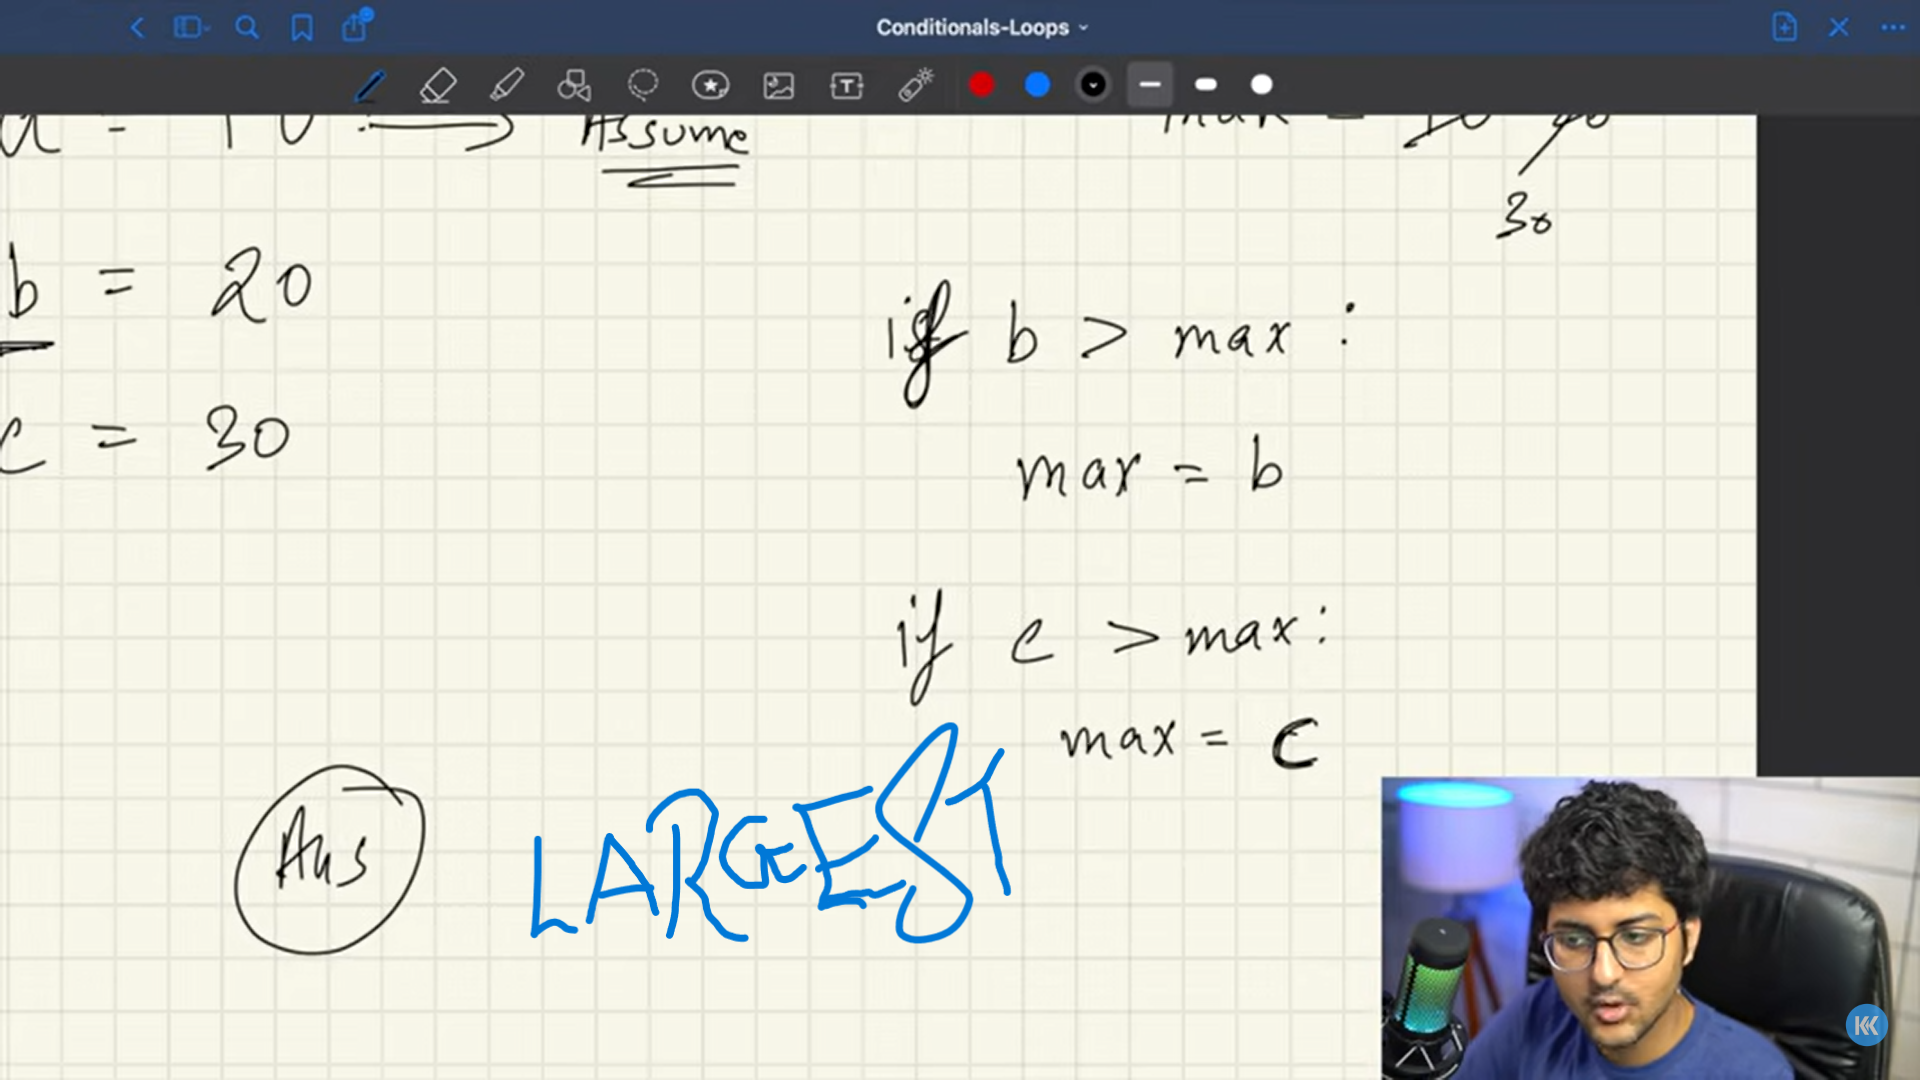 Conditionals-Loops
T
a = 10 → Assume
max = 10 20
30
b = 20
c = 30
if b > max :
max = b
if c > max :
max = c
Ans
LARGEST
KK